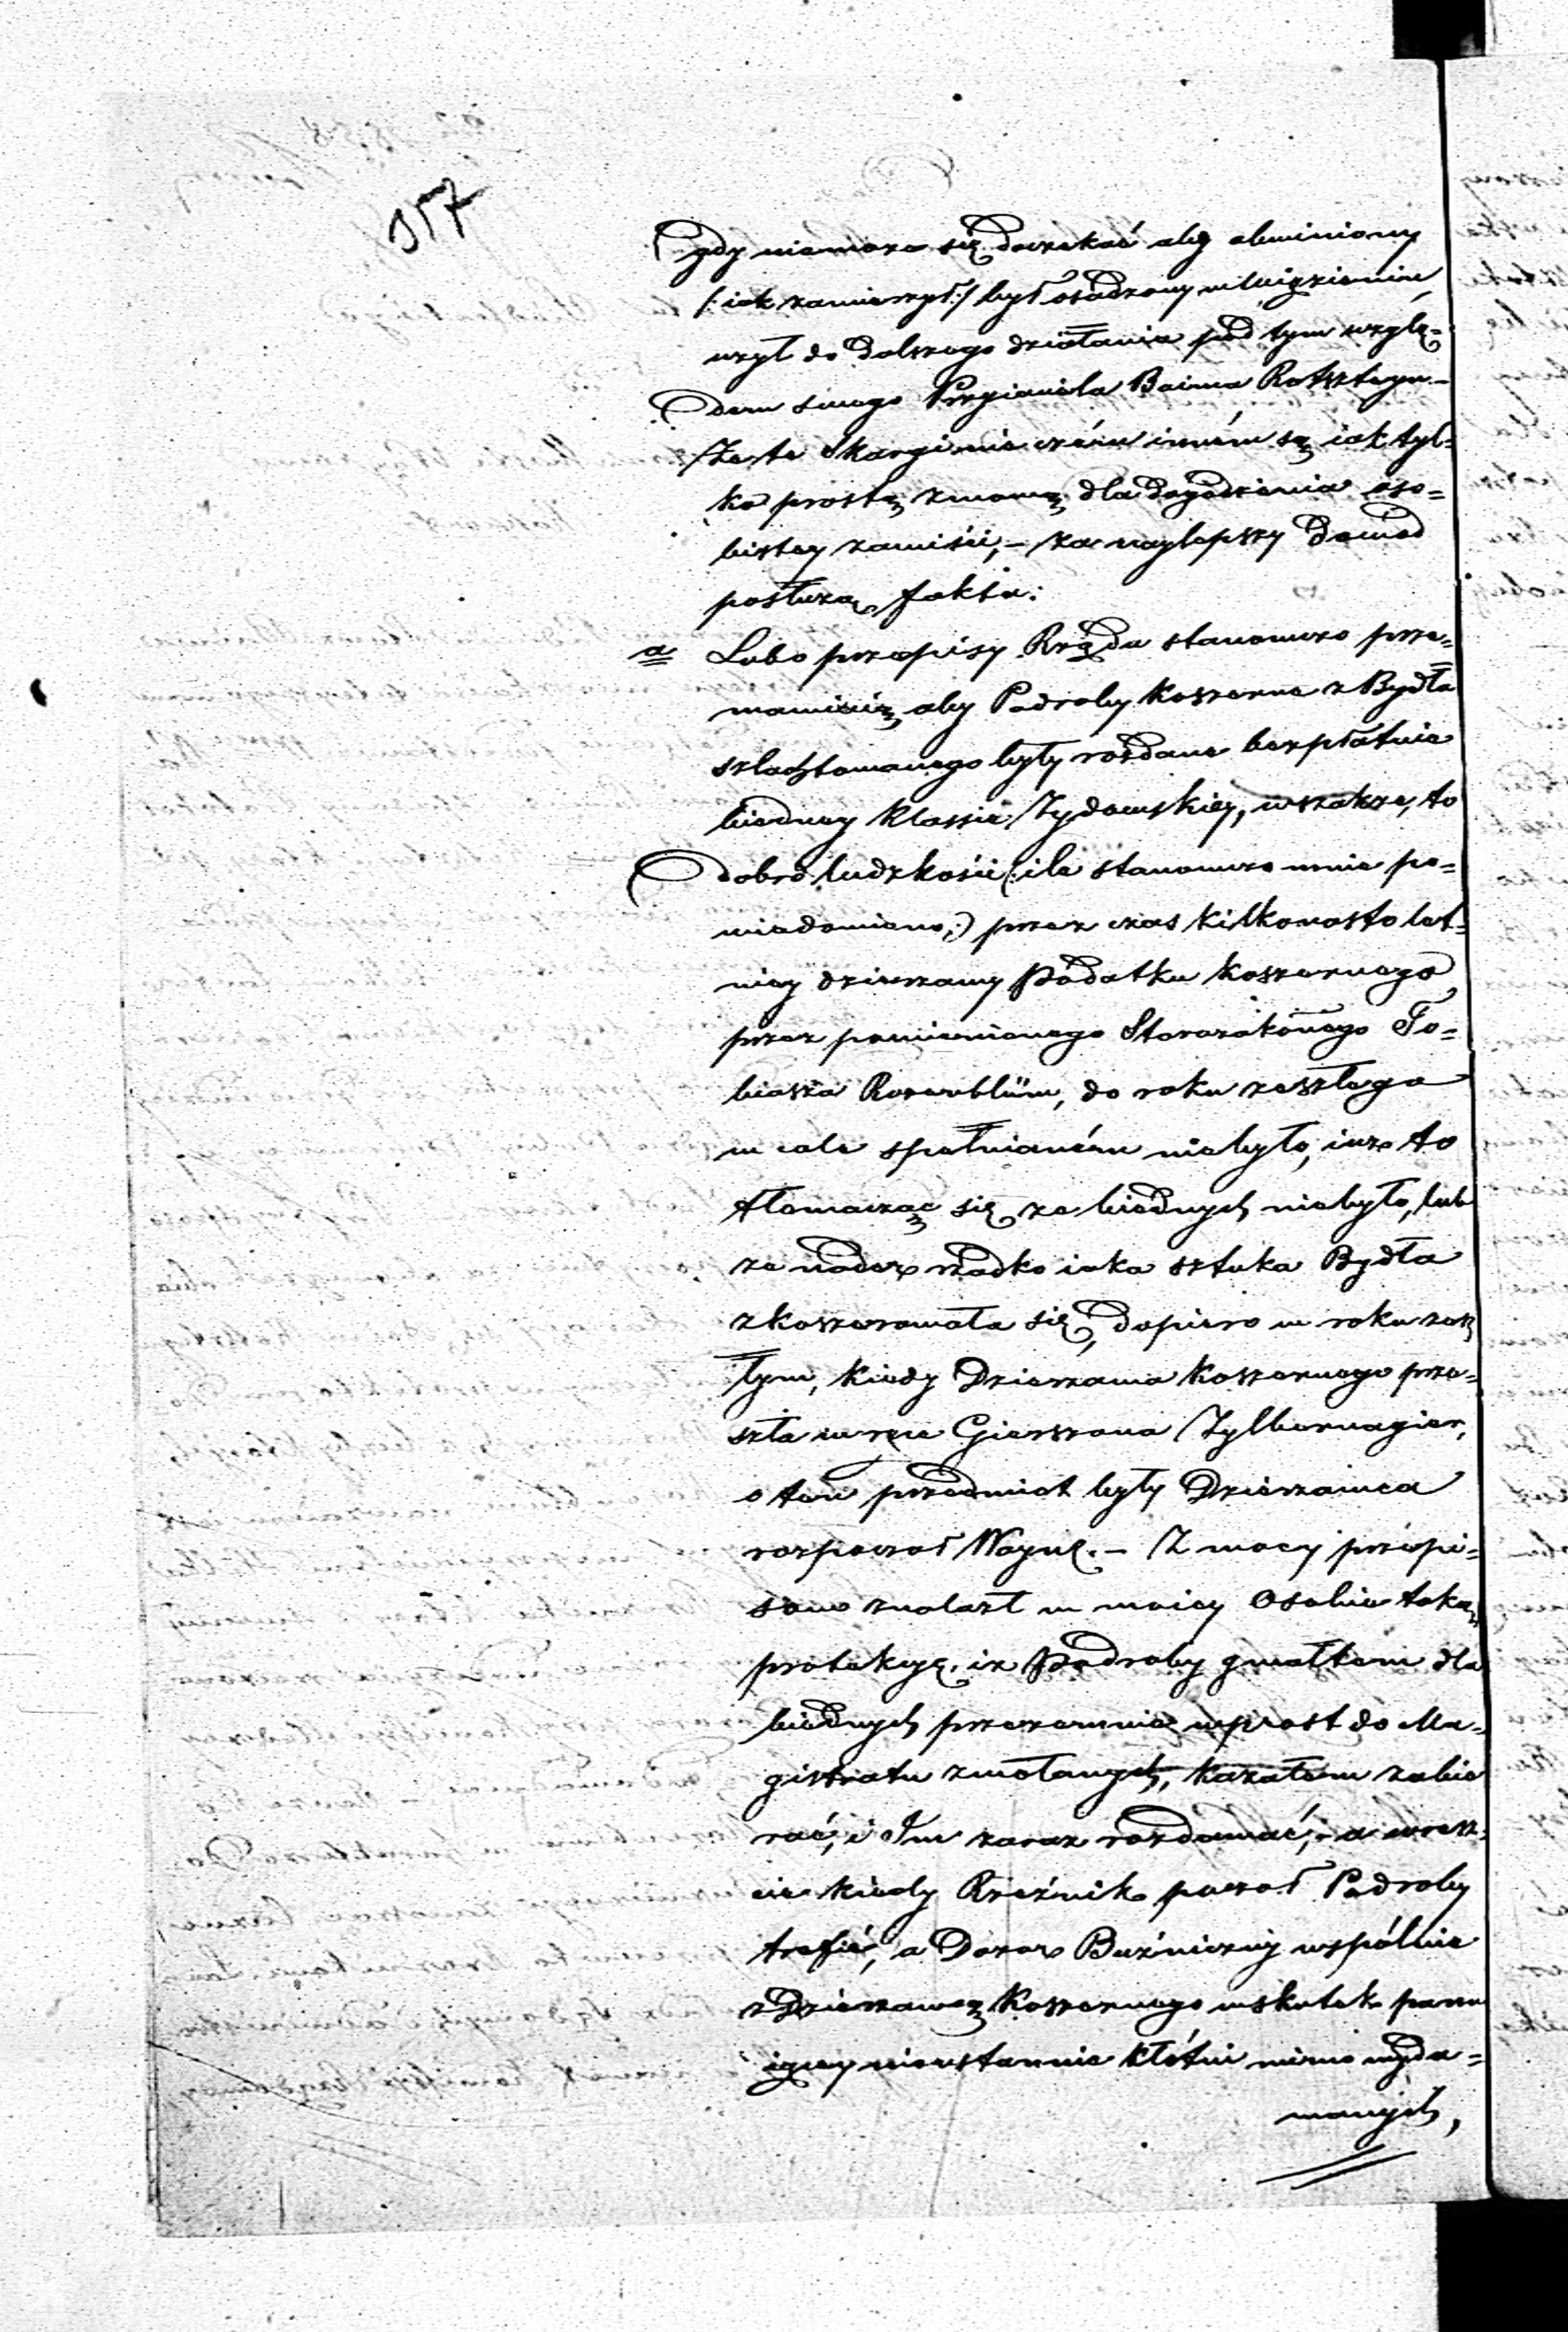 157
gdy niemoze się doczekać aby obwiniony
/: iak zamierzył :/ był osadzony w więzieniu
użył do dalszego działania pod tym wzglę=
dem swego Przyiaciela Boima Rotszteyn –
Że te Skargi nie czém inném są iak tyl=
ko prostą zmową dla dogodzenia oso=
bistey zawiści, – za naylepszy dowod
posłużą fakta:
a Lubo przepisy Rządu stanowczo prze=
mawiaią, aby Podroby Koszerne z Bydła
szlachtowanego były rozdane bezpłatnie
biedney Klassie Żydowskiey, wszakże, to
dobro ludzkości (: ile stanowczo mnie po=
wiadomiono, :) przez czas kilkonasto let=
niey dzierzawy Podatku koszernego
przez pomienionego Starozakonnego To=
biasza Rozenblüm, do roku zeszłego
w cale spełnianém niebyło, iuż to
tłomacząc się ze biednych niebyło, lub
ze nader rzadko iaka sztuka Bydła
zkoszerowała się, dopiero w roku zesz
łym, kiedy Dzierzawa Koszernego prze=
szła w ręce Gierszona Zylbernagier,
o ten przedmiot były Dzierzawca
rozpoczoł Woynę. – Z mocy przepi=
sow znalazł w moiey Osobie taką
protekcyę, iz Podroby gwałtem dla
biednych przezemnie wprost do Ma=
gistratu zwołanych, kazałem zabie
rać, i Im zaraz rozdawać, – a wresz=
cie kiedy Rzeźnik poczoł Podroby
trefić, a Dozor Bużniczny wspólnie
z Dzierzawcą Koszernego wskutek panu
iącey nieustannie kłótni mimo wyda=
wanych,